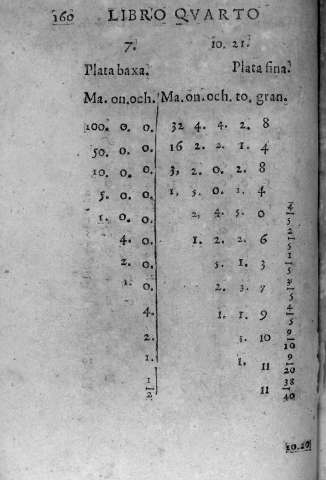 160 LIBRO QVARTO
7. 10. 21.
Plata baxa. Plata fina.
Ma. on. och. Ma. on. och. to. gran.
100. 0. 0. 32 4. 4. 2. 8
50. 0. 0. 16 2. 2. 1. 4
10. 0. 0. 3, 2. 0. 2. 8
5. 0. 0. 1, 5. 0. 1. 4
1. 0. 0. 2, 4. 5. 0 4/5
4. 0. 1. 2. 2. 6 2/5
2. 0. 5. 1. 3 1/5
1. 0. 2. 3. 7 3/5
4. 1. 1. 9 4/5
2. 3. 10 9/10
1. 1. 11 9/20
1/2 11 38/40
10. 20